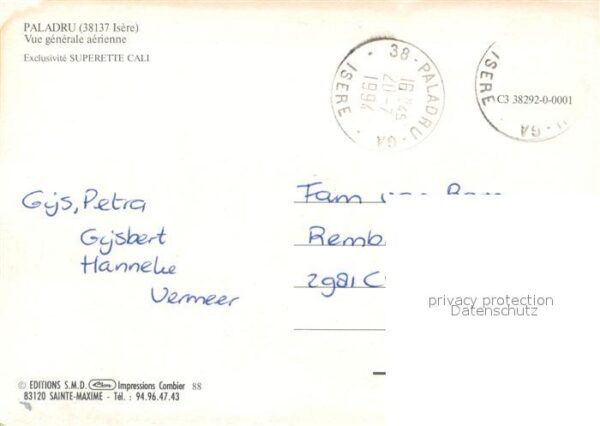 PALADRU (38137 Isère)
Vue générale aérienne
Exclusivité SUPERETTE CALI
38 - PALADRU - GA
16 H45
20 - 7
1994
ISERE
C3 38292-0-0001
ISERE
GA
Gijs, Petra
Gijsbert
Hanneke
Vermeer
Fam
Remb
2981 C
privacy protection
Datenschutz
© EDITIONS S.M.D. Cim Impressions Combier 88
83120 SAINTE-MAXIME - Tél. : 94.96.47.43